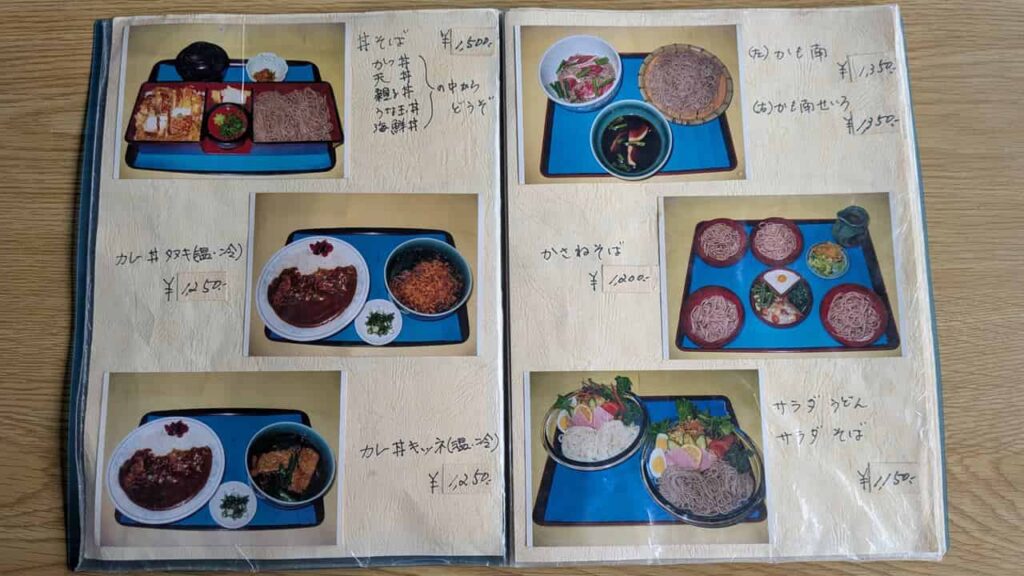 丼そば ¥1,500.-
かつ丼
天丼
親子丼
うな玉丼
海鮮丼
の中から
どうぞ
カレー丼タヌキ(温・冷)
¥1,250.-
カレー丼キツネ(温・冷)
¥1,250.-
(左)かも南
¥1,350.-
(右)かも南せいろ
¥1,350.-
かさねそば
¥1,200.-
サラダうどん
サラダそば
¥1,150.-